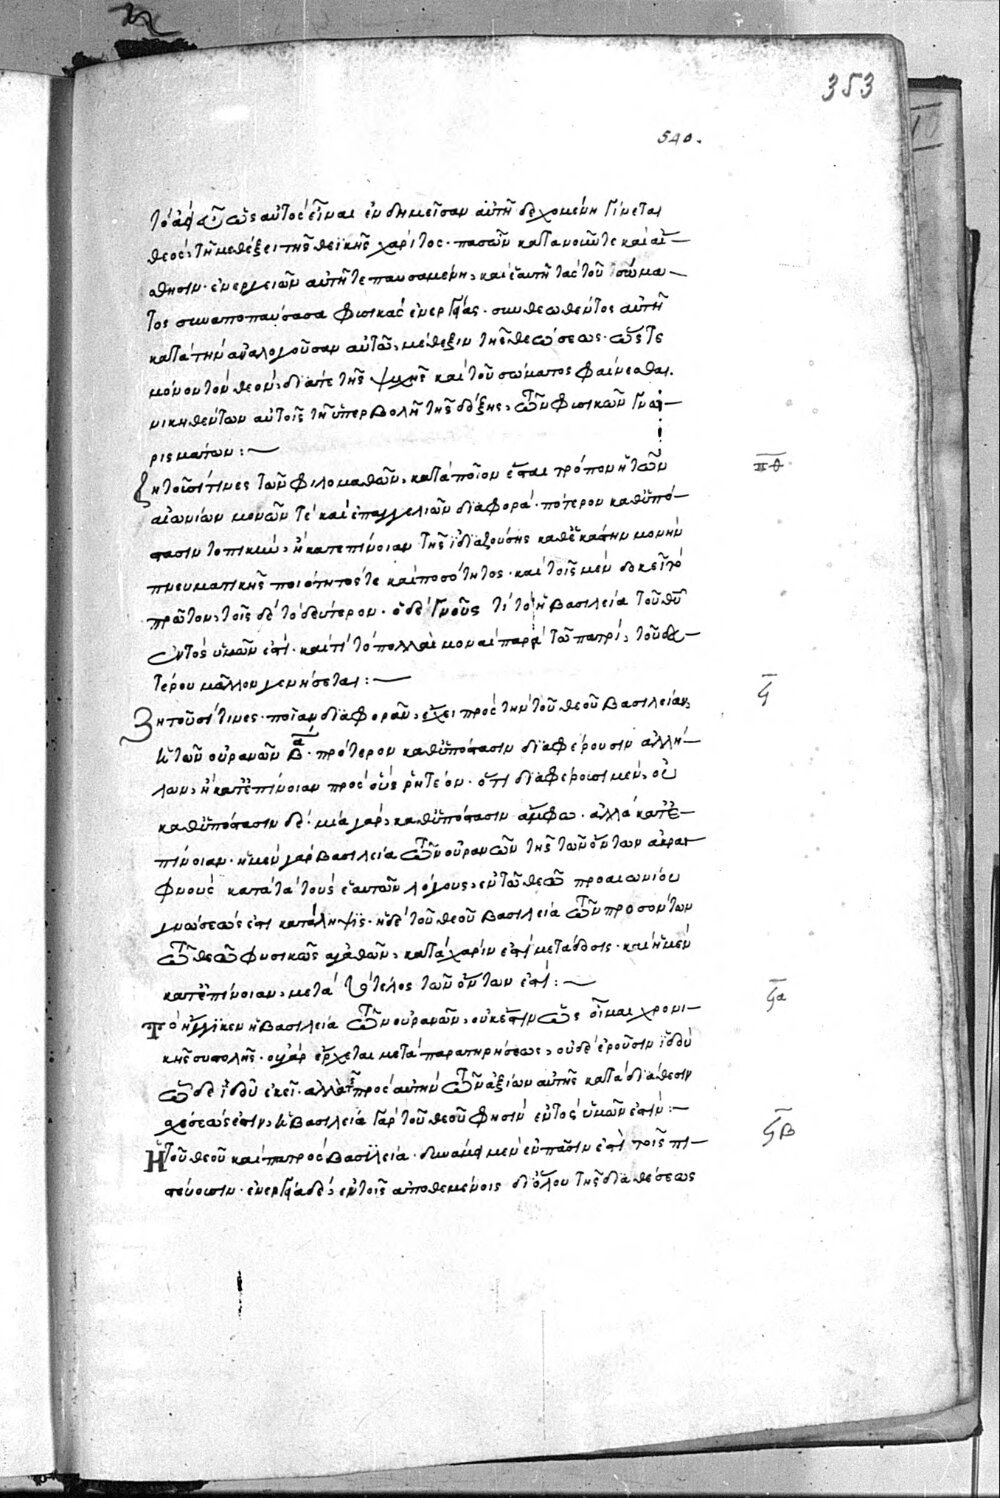 353
540.
τὸ ἀφ' οὗ ὡς αὐτὸς εἶναι ἐνδημεῖσαν αὐτῇ δεχομένη γίνεται
θεὸς, τῇ μεθέξει τῆς θεϊκῆς χάριτος· πασῶν κατανοῦντε καὶ αἴ-
σθησιν· ἐνεργειῶν αὐτῆ τε παυσαμένη, καὶ ἑαυτῇ τὰς τοῦ σώμα-
τος συναποπαύσασα φυσικὰς ἐνεργείας· συνθεωθέντος αὐτῇ
κατὰ τὴν ἀναλογοῦσαν αὐτῶ, μέθεξιν τῆς θεώσεως· ὥστε
μόνον τὸν θεὸν, διά τε τῆς ψυχῆς καὶ τοῦ σώματος φαίνεσθαι.
νικηθέντων αὐτοῖς τῇ ὑπερβολῇ τῆς δόξης, τῶν φυσικῶν γνω-
ρισμάτων :~
ζητοῦσί τινες τῶν φιλομαθῶν, κατὰ ποῖον ἔσται τρόπον ἡ τῶν
πθ
αἰωνίων μονῶν τὲ καὶ ἐπαγγελιῶν διαφορά· πότερον καθ' ὑπό-
στασιν τοπικῶς, ἢ κατεπίνοιαν τῆς ἰδιαζούσης καθ' ἑκάστην μονὴν
πνευματικῆς ποιότητός τε καὶ ποσότητος· καὶ τοῖς μὲν δοκεῖ τὸ
πρῶτον, τοῖς δὲ τὸ δεύτερον· ὁ δὲ γνοὺς τί τὸ ἡ βασιλεία τοῦ θυ
ἐντὸς ὑμῶν ἐστί· καὶ τί τὸ πολλαὶ μοναὶ παρὰ τῶ πατρί, τοῦ δευ-
τέρου μᾶλλον γενήσεται :~
ϟ
Ζητοῦσί τινες· ποίαν διαφορὰν, ἔχει πρὸς τὴν τοῦ θεοῦ βασιλείαν,
ἡ τῶν οὐρανῶν β̄α· πρότερον καθ' ὑπόστασιν διαφέρουσιν ἀλλή-
λων, ἢ κατ' ἐπίνοιαν πρὸς οὓς ῥητέον· ὅτι διαφέρουσι μὲν, οὐ
καθ' ὑπόστασιν δέ· μία γὰρ, καθ' ὑπόστασιν ἄμφω· ἀλλὰ κατ' ἐ-
πίνοιαν· ἡ μὲν γὰρ βασιλεία τῶν οὐρανῶν τῆς τῶν ὄντων ἀκραι-
φνοῦς κατὰ τὰ τοὺς ἑαυτῶν λόγους, ἐν τῶ θεῶ προαιωνίου
γνώσεώς ἐστι κατάληψις· ἡ δὲ τοῦ θεοῦ βασιλεία τῶν προσόντων
τῶ θεῶ φυσικῶς ἀγαθῶν, κατὰ χάριν ἐστὶ μετάδοσις· καὶ ἡ μὲν
κατ' ἐπίνοιαν, μετὰ τὸ τέλος τῶν ὄντων ἐστί :~
ϟα
Τὸ ἤγγικεν ἡ βασιλεία τῶν οὐρανῶν, οὐκ ἔστιν ὡς οἶμαι χρονι-
κῆς συστολῆς· οὐ γὰρ ἔρχεται μετὰ παρατηρήσεως, οὐδὲ ἐροῦσιν ἰδοὺ
ὧδε ἰδοὺ ἐκεῖ· ἀλλὰ τῆς πρὸς αὐτὴν τῶν ἀξίων αὐτῆς κατὰ διάθεσιν
σχέσεώς ἐστιν, ἡ βασιλεία γὰρ τοῦ θεοῦ φησὶν ἐντὸς ὑμῶν ἐστίν :~
ϟβ
Ἡ τοῦ θεοῦ καὶ πατρὸς βασιλεία· δυνάμει μὲν ἐν πᾶσιν ἐστὶ τοῖς πι-
στεύουσιν· ἐνεργεία δὲ, ἐν τοῖς ἀποθεμένοις δι' ὅλου τῆς διαθέσεως